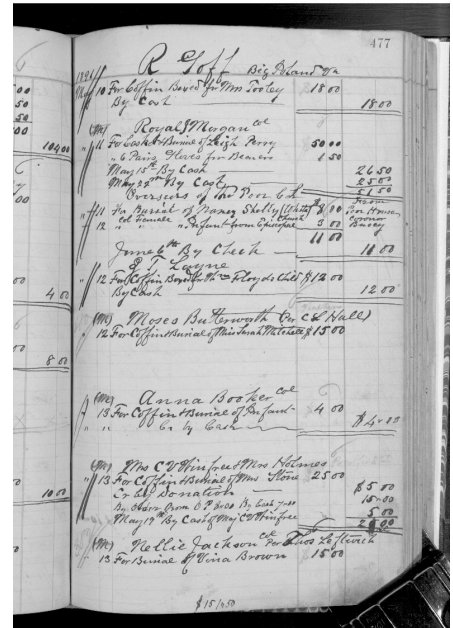 477
R Goff Big Island Va
May 10 For Coffin Boxed for Mrs Tooley 18 00
By Cash 18 00
(Mc) Royal & Morgan col
11 For Casket & Burial of Leigh Perry 50 00
" 6 Pairs Gloves for Bearers 1 50
May 15th By Cash 26 50
May 22nd By Cash 25 00
51 50
Overseers of the Poor C.H.
11 For Burial of Nancy Shelby (White) $8 00 From Poor House
12 Col Female " Infant from Episcopal Church 3 00
11 00
June 6th By Check 11 00
E T Layne
12 For Coffin Boxed for Floyds Child $12 00
By Cash 12 00
(Mc) Moses Butterworth (Per C S Hall)
12 For Coffin & Burial of Miss Sarah Mitchell $15 00
(Mc) Anna Booker col
13 For Coffin & Burial of Infant 4 00
" " Cr by Cash $4.00
(Mc) Mrs C V Winfree & Mrs Holmes
13 For Coffin & Burial of Mrs Stone 25 00
Cr by Donation $5 00
15.00
May 19th By Cash of Maj C V Winfree 5 00
25 00
(Mc) Nellie Jackson col Per Thos Leftwich
13 For Burial of Vina Brown 15 00
$15/450
00
50
50
00
104 00
4 00
8 00
10 00